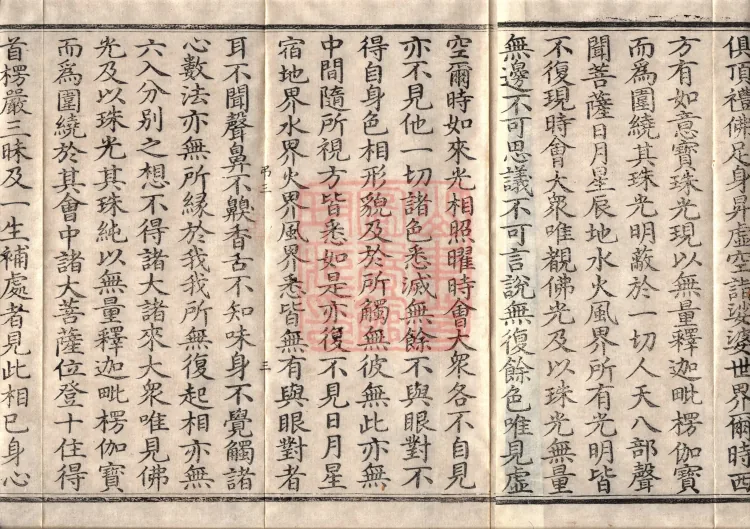 俱頂禮佛足身昇虛空詣娑婆世界爾時西
方有如意寶珠光現以無量釋迦毗楞伽寶
而爲圍繞其珠光明蔽於一切人天八部聲
聞菩薩日月星辰地水火風界所有光明皆
不復現時會大衆唯觀佛光及以珠光無量
無邊不可思議不可言說無復餘色唯見虛
空爾時如來光相照曜時會大衆各不自見
亦不見他一切諸色悉滅無餘不與眼對不
得自身色相形貌及於所觸無彼無此亦無
中間隨所視方皆悉如是亦復不見日月星
宿地界水界火界風界悉皆無有與眼對者
弔三 三
耳不聞聲鼻不齅香舌不知味身不覺觸諸
心數法亦無所緣於我我所無復起相亦無
六入分別之想不得諸大諸來大衆唯見佛
光及以珠光其珠純以無量釋迦毗楞伽寶
而爲圍繞於其會中諸大菩薩位登十住得
首楞嚴三昧及一生補處者見此相已身心